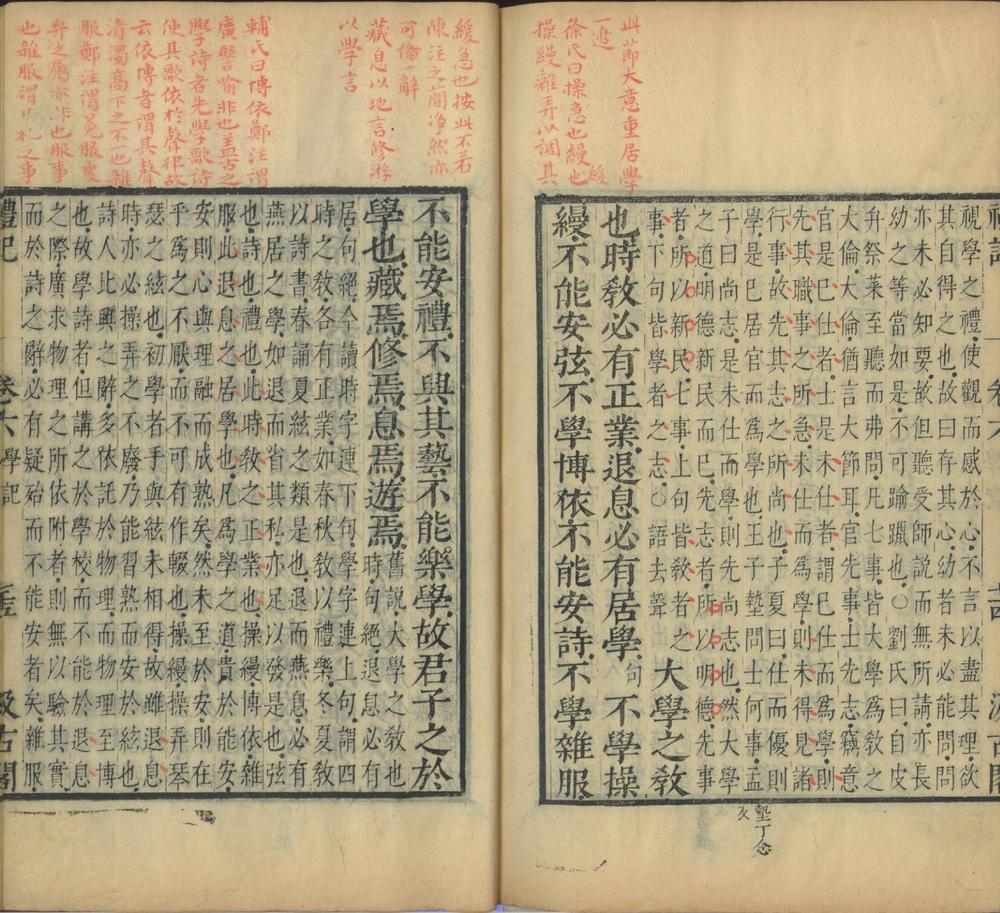 此節大意重居學
一邊
徐氏曰操急也縵
緩也
操縵雜弄以調其
緩急也按此不若
陳注之簡淨然亦
可倫一解
藏息以地言修游
以學言
輔氏曰博依鄭注謂
廣譬喻非也蓋古之
學詩者先學歌詩
使其歌依於聲律故
云依博者謂其聲
清濁高下之不一也雜
服鄭注謂冕服皮
弁之屬亦非也服事
也雜服謂凡禮之事
視學之禮使觀而感於心不言以盡其理欲
其自得之也故曰存其心幼者未必能問問
亦未必知要故但聽受師說而無所請亦長
幼之等當如是不可踰躐也○劉氏曰自皮
升祭菜至聽而弗問凡七事皆大學爲敎之
大倫大倫猶言大節耳官先事士先志竊意
官是已仕者士是未仕者謂已仕而爲學則
先其職事之所急未仕而爲學則未得見諸
行事故先其志之所尚也子夏曰仕而優則
學是已居官而爲學也王子墊問士何事孟
子曰尚志是未仕而學則先尚志也然大學
之道明德新民而已先志者所以明德先事
者所以新民七事上句皆敎者之
事下句皆學者之志○語去聲
大學之敎
也時敎必有正業退息必有居學句不學操
縵不能安弦不學博依不能安詩不學雜服
墊丁念
反
不能安禮不興其藝不能樂學故君子之於
學也藏焉修焉息焉遊焉
舊說大學之敎也
時句絕退息必有
居句絕今讀時字連下句學字連上句謂四
時之敎各有正業如春秋敎以禮樂冬夏敎
以詩書春誦夏絃之類是也退而燕息必有
燕居之學如退而省其私亦足以發是也弦
也詩也禮也此時敎之正業也操縵博依雜
服此退息之居學也凡爲學之道貴於能安
安則心與理融而成熟矣然未至於安則在
乎爲之不厭而不可有作輟也操縵操弄琴
瑟之絃也初學者手與絃未相得故雖退息
時亦必操弄之不廢乃能習熟而安於絃也
詩人比興之辭多依託於物理而物理至博
也故學詩者但講之於學校而不能於退息
之際廣求物理之所依附者則無以驗其實
而於詩之辭必有疑殆而不能安者矣雜服
禮記
卷六 學記
汲古閣